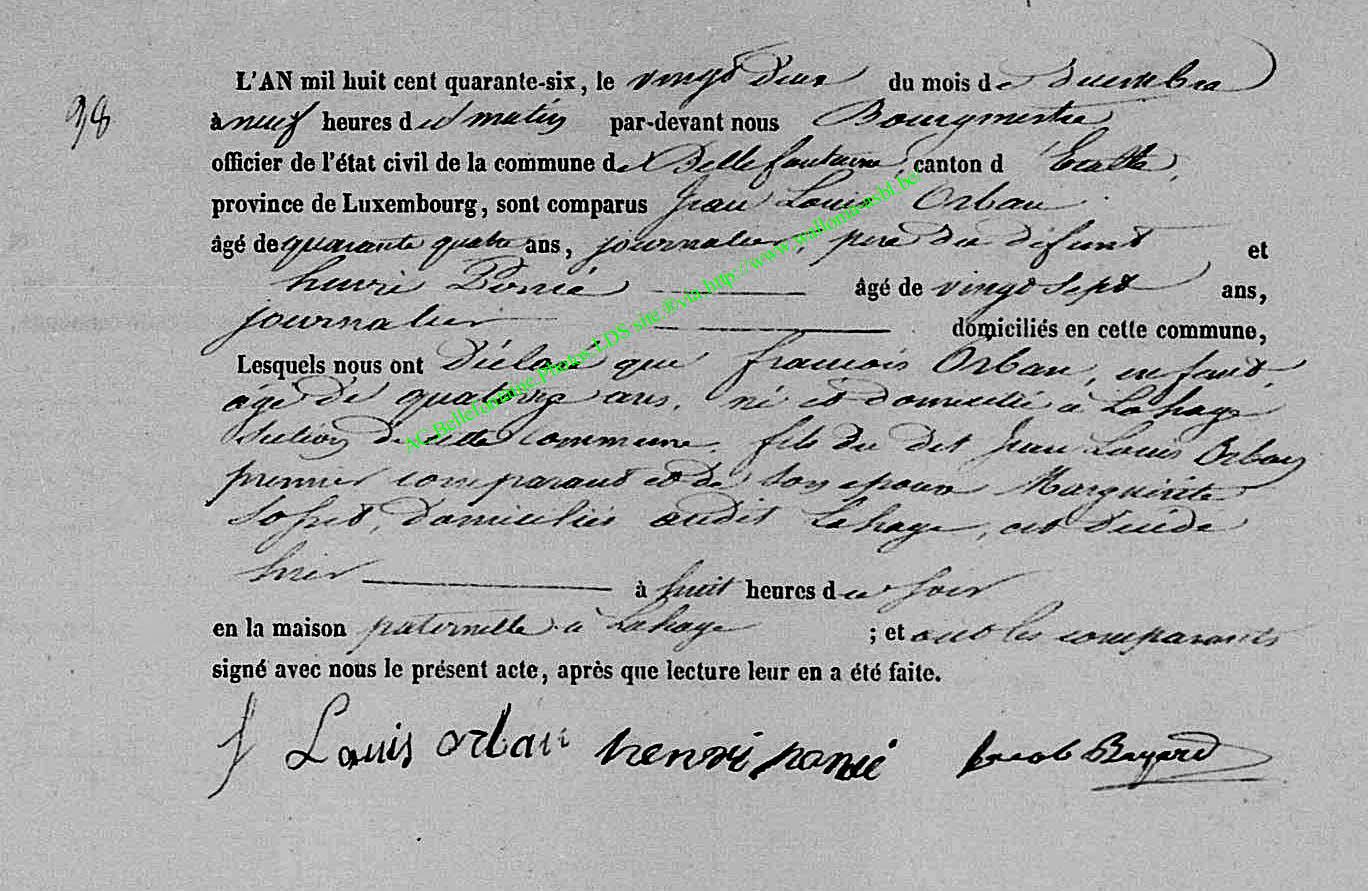 98
L'AN mil huit cent quarante-six, le vingt deux du mois de décembre
à neuf heures du matin par-devant nous Bourgmestre
officier de l'état civil de la commune de Bellefontaine, canton d'Etalle,
province de Luxembourg, sont comparus Jean Louis Orban
âgé de quarante quatre ans, journalier, père du défunt et
henri Poncé âgé de vingt sept ans,
journalier domiciliés en cette commune,
Lesquels nous ont déclaré que francois Orban, enfant,
âgé de ans, né et domicilié à Lahage
section de cette commune, fils du dit Jean Louis Orban
premier comparant et de son epouse Marguerite
domiciliés audit Lahage, est décédé
hier à huit heures du soir
en la maison paternelle à Lahage ; et ont les comparants
signé avec nous le présent acte, après que lecture leur en a été faite.
J Louis orban henri poncé Jacob Bayard
AC Bellefontaine Photos LDS site ®via http://www.wallonia-asbl.be/